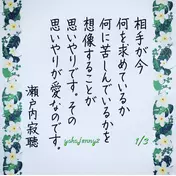 相手が今
何を求めているか
何に苦しんでいるかを
想像することが
思いやりです。その
思いやりが愛なのです。
瀬戸内寂聴
yoko_fenny2
1/3